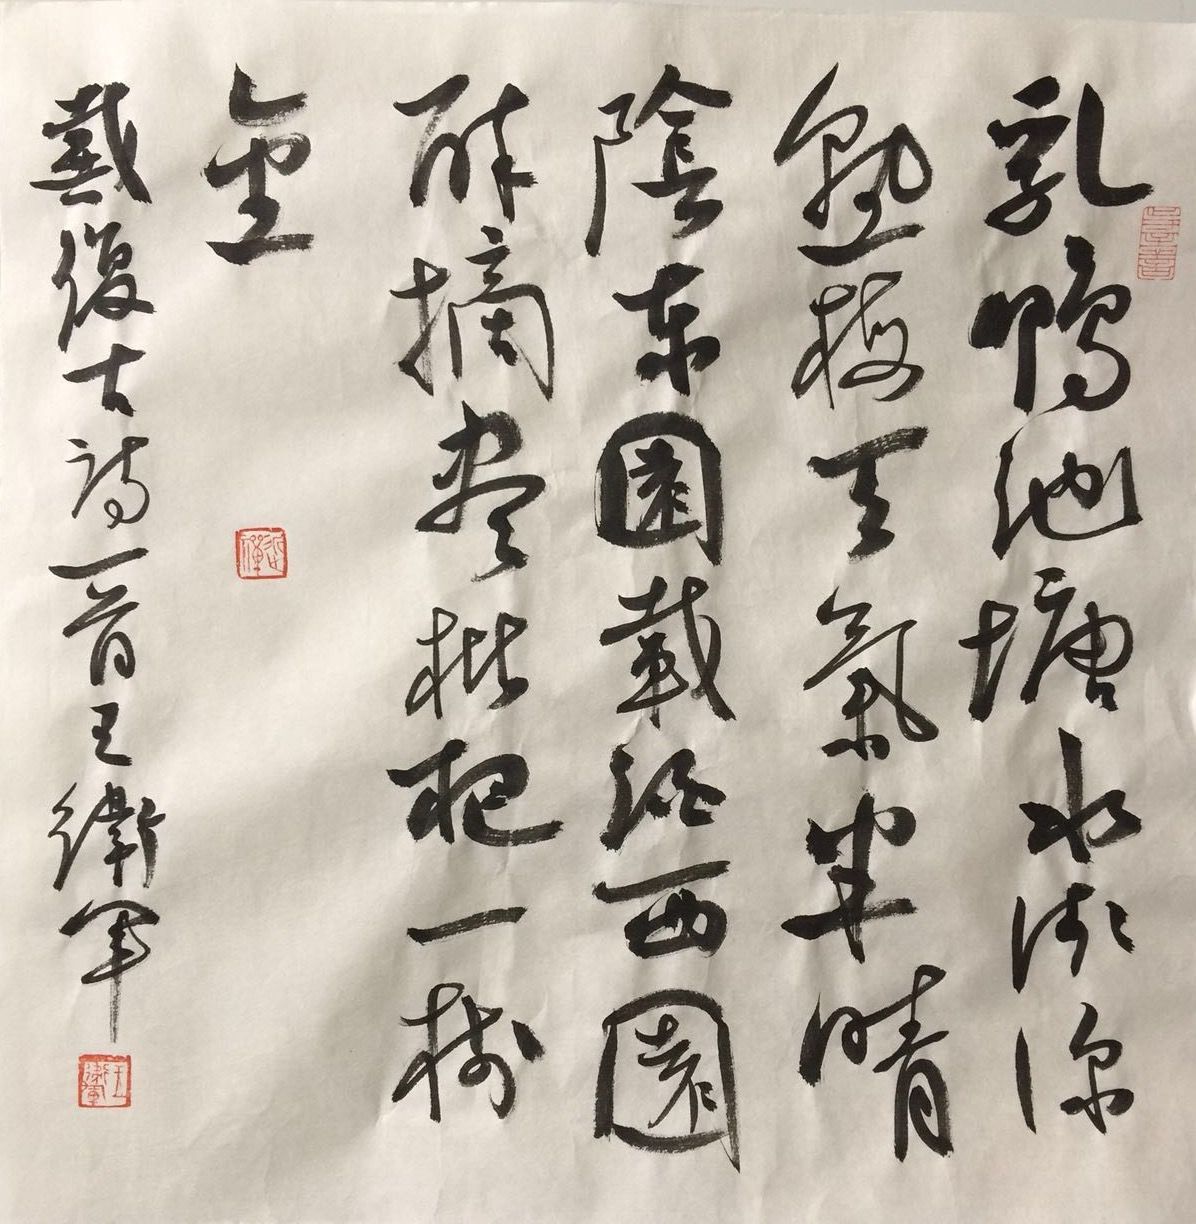 乳鴨池塘水淺深
熟梅天氣半晴
陰東園載酒西園
醉摘盡枇杷一樹
金
戴復古詩一首王衛軍
王衛軍